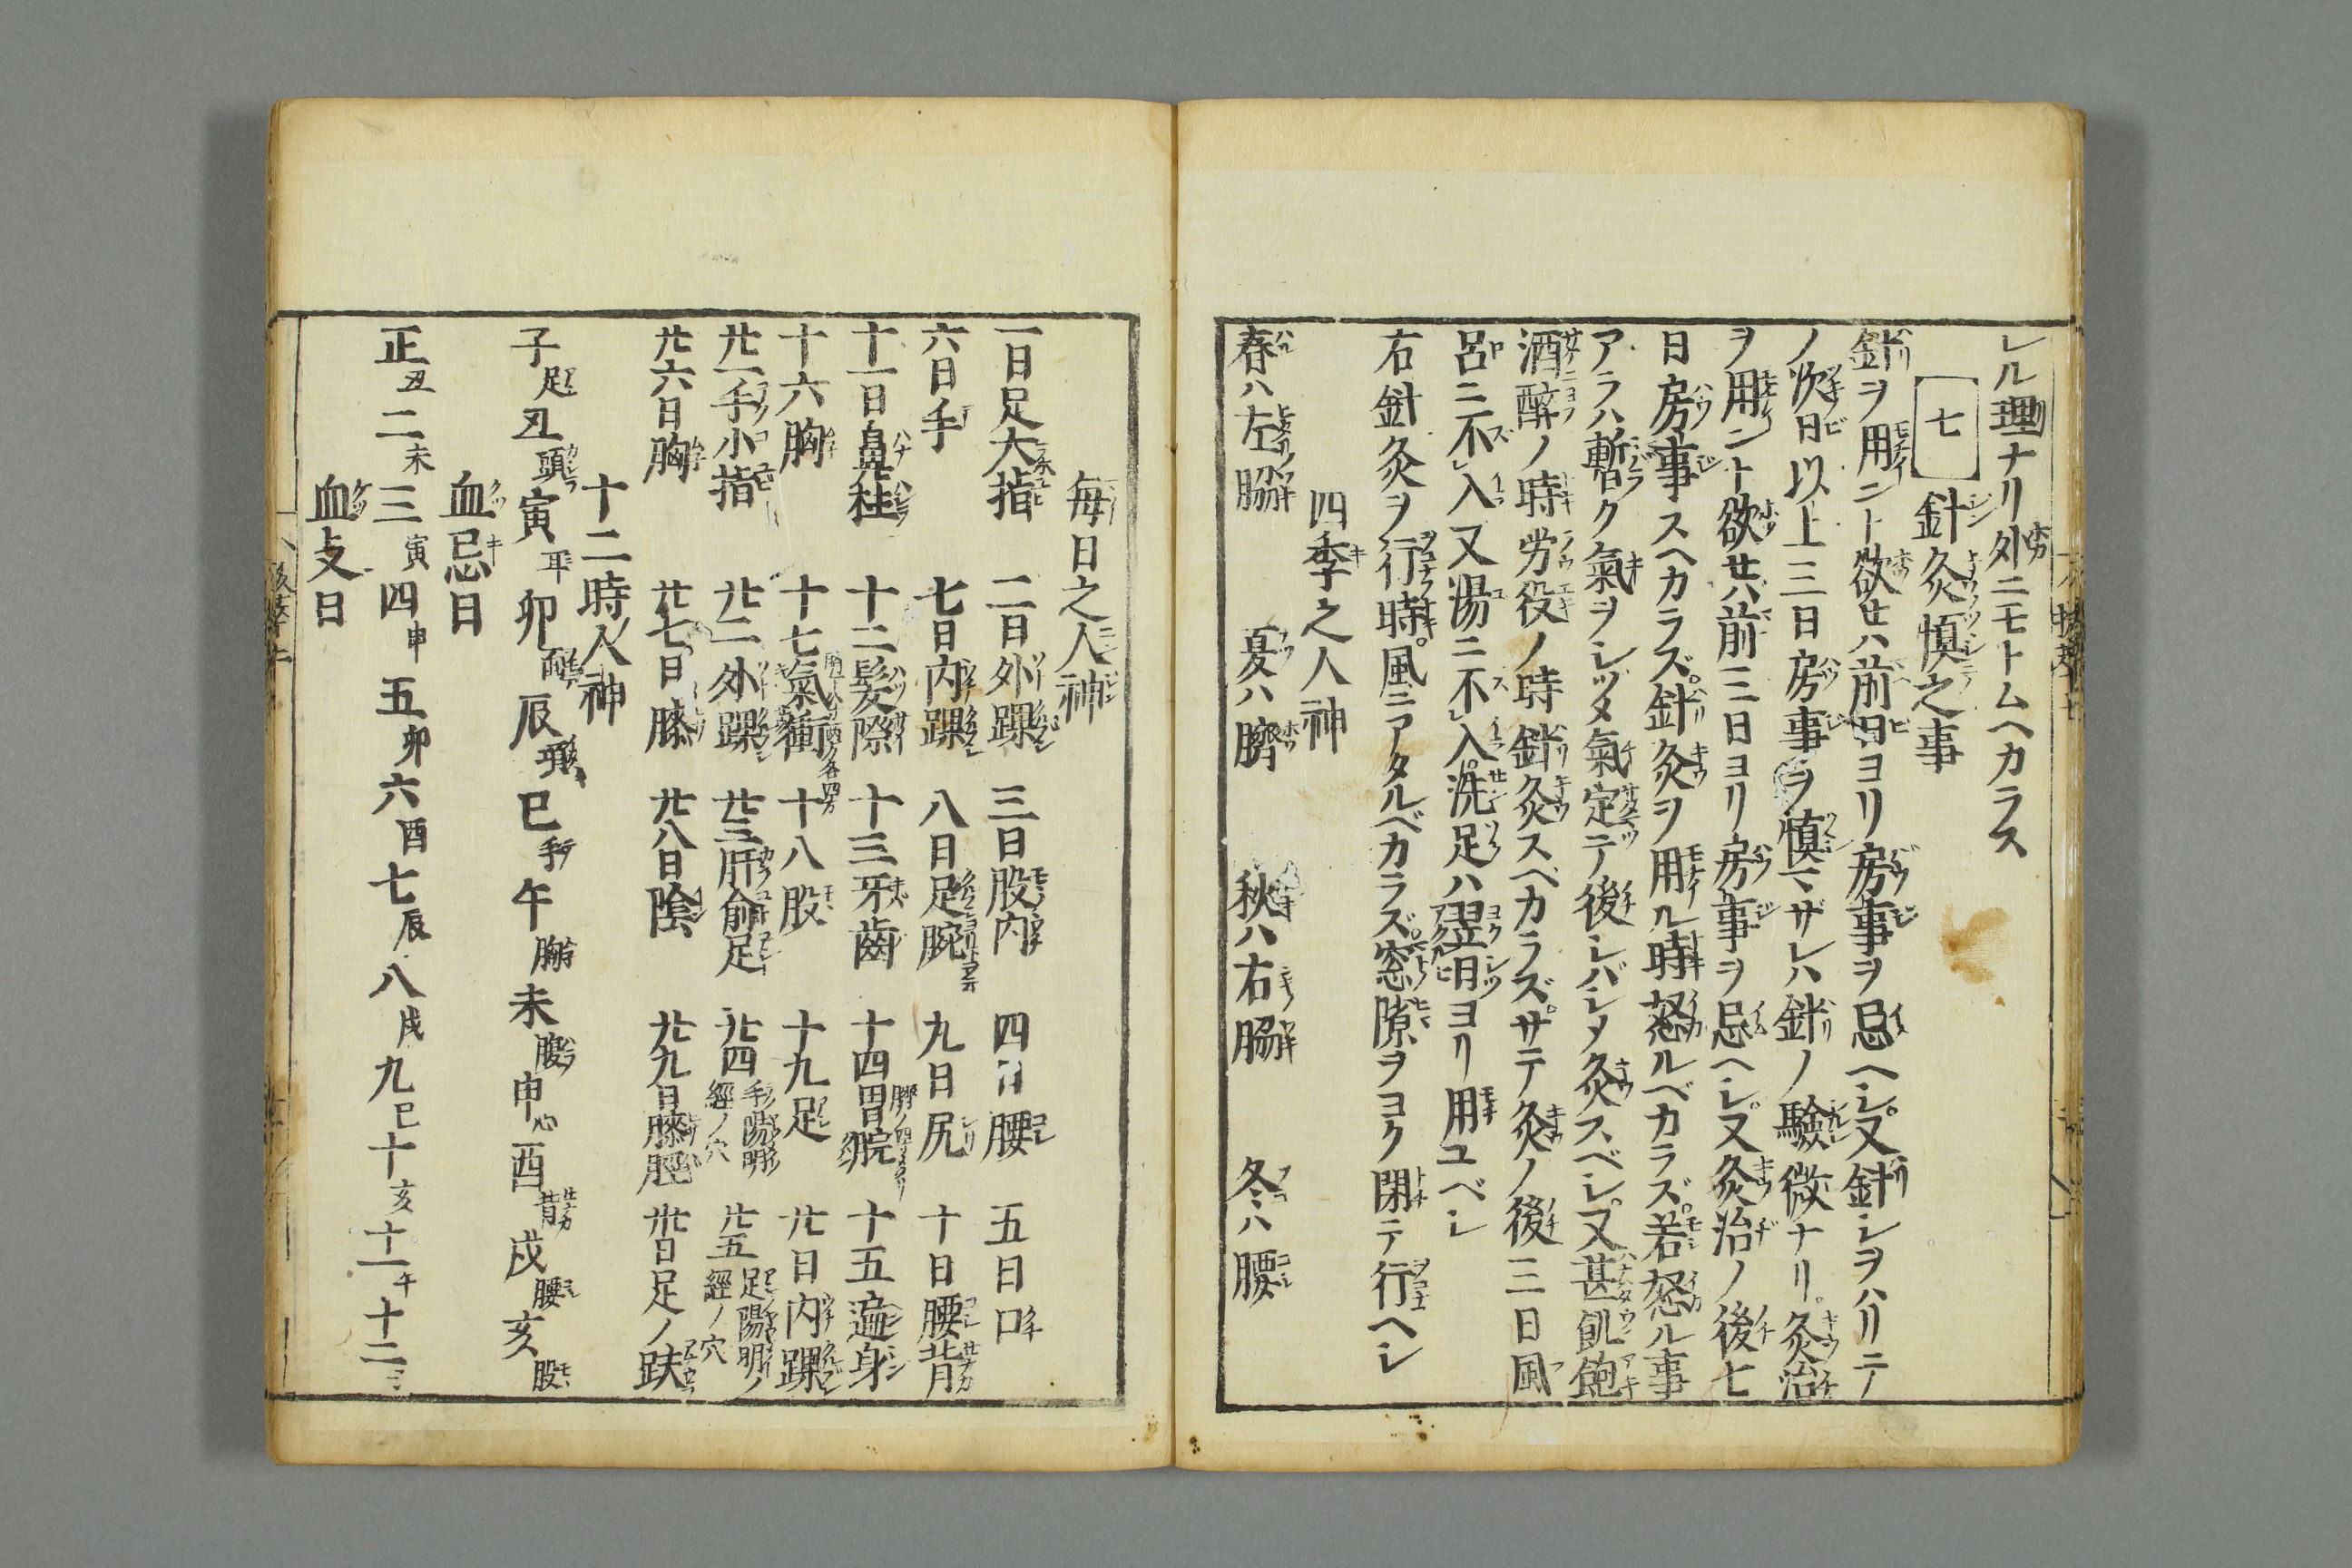 レル理ナリ外ニモトムヘカラス
七 針灸慎之事
針ヲ用ニト欲セハ前日ヨリ房事ヲ忌ヘシ又針シヲハリテ
ノ次日以上三日房事ヲ慎マザレハ針ノ驗微ナリ灸治
ヲ用ント欲セバ前三日ヨリ房事ヲ忌ヘシ又灸治ノ後七
日房事スヘカラズ針灸ヲ用ル時怒ルベカラズ若怒ル事
アラハ暫ク氣ヲシツメ氣定テ後シバシメ灸スベシ又甚飢飽
酒醉ノ時労役ノ時針灸スベカラズサテ灸ノ後三日風
呂ニ不入又湯ニ不入洗足ハ翌日ヨリ用ユベシ
右針灸ヲ行時風ニアタルベカラズ窓隙ヲヨク閉テ行ヘシ
四季之人神
春ハ左脇 夏ハ臍 秋ハ右脇 冬ハ腰
毎日之人神
一日足大指 二日外踝 三日股内 四日腰 五日口
六日手 七日内踝 八日足腕 九日尻 十日腰背
十一日鼻柱 十二髪際 十三牙齒 十四胃脘 十五遍身
十六胸 十七氣衝 十八股 十九足 廿日内踝
廿一手小指 廿二外踝 廿三肝俞足 廿四手陽明經ノ穴 廿五足陽明ノ經ノ穴
廿六日胸 廿七日膝 廿八日陰 廿九日膝脛 卅日足ノ趺
十二時人神
子足 丑頭 寅耳 卯面 辰項 巳手 午胸 未腹 申心 酉背 戌腰 亥股
血忌日
正丑 二未 三寅 四申 五卯 六酉 七辰 八戌 九巳 十亥 十一午 十二子
血支日